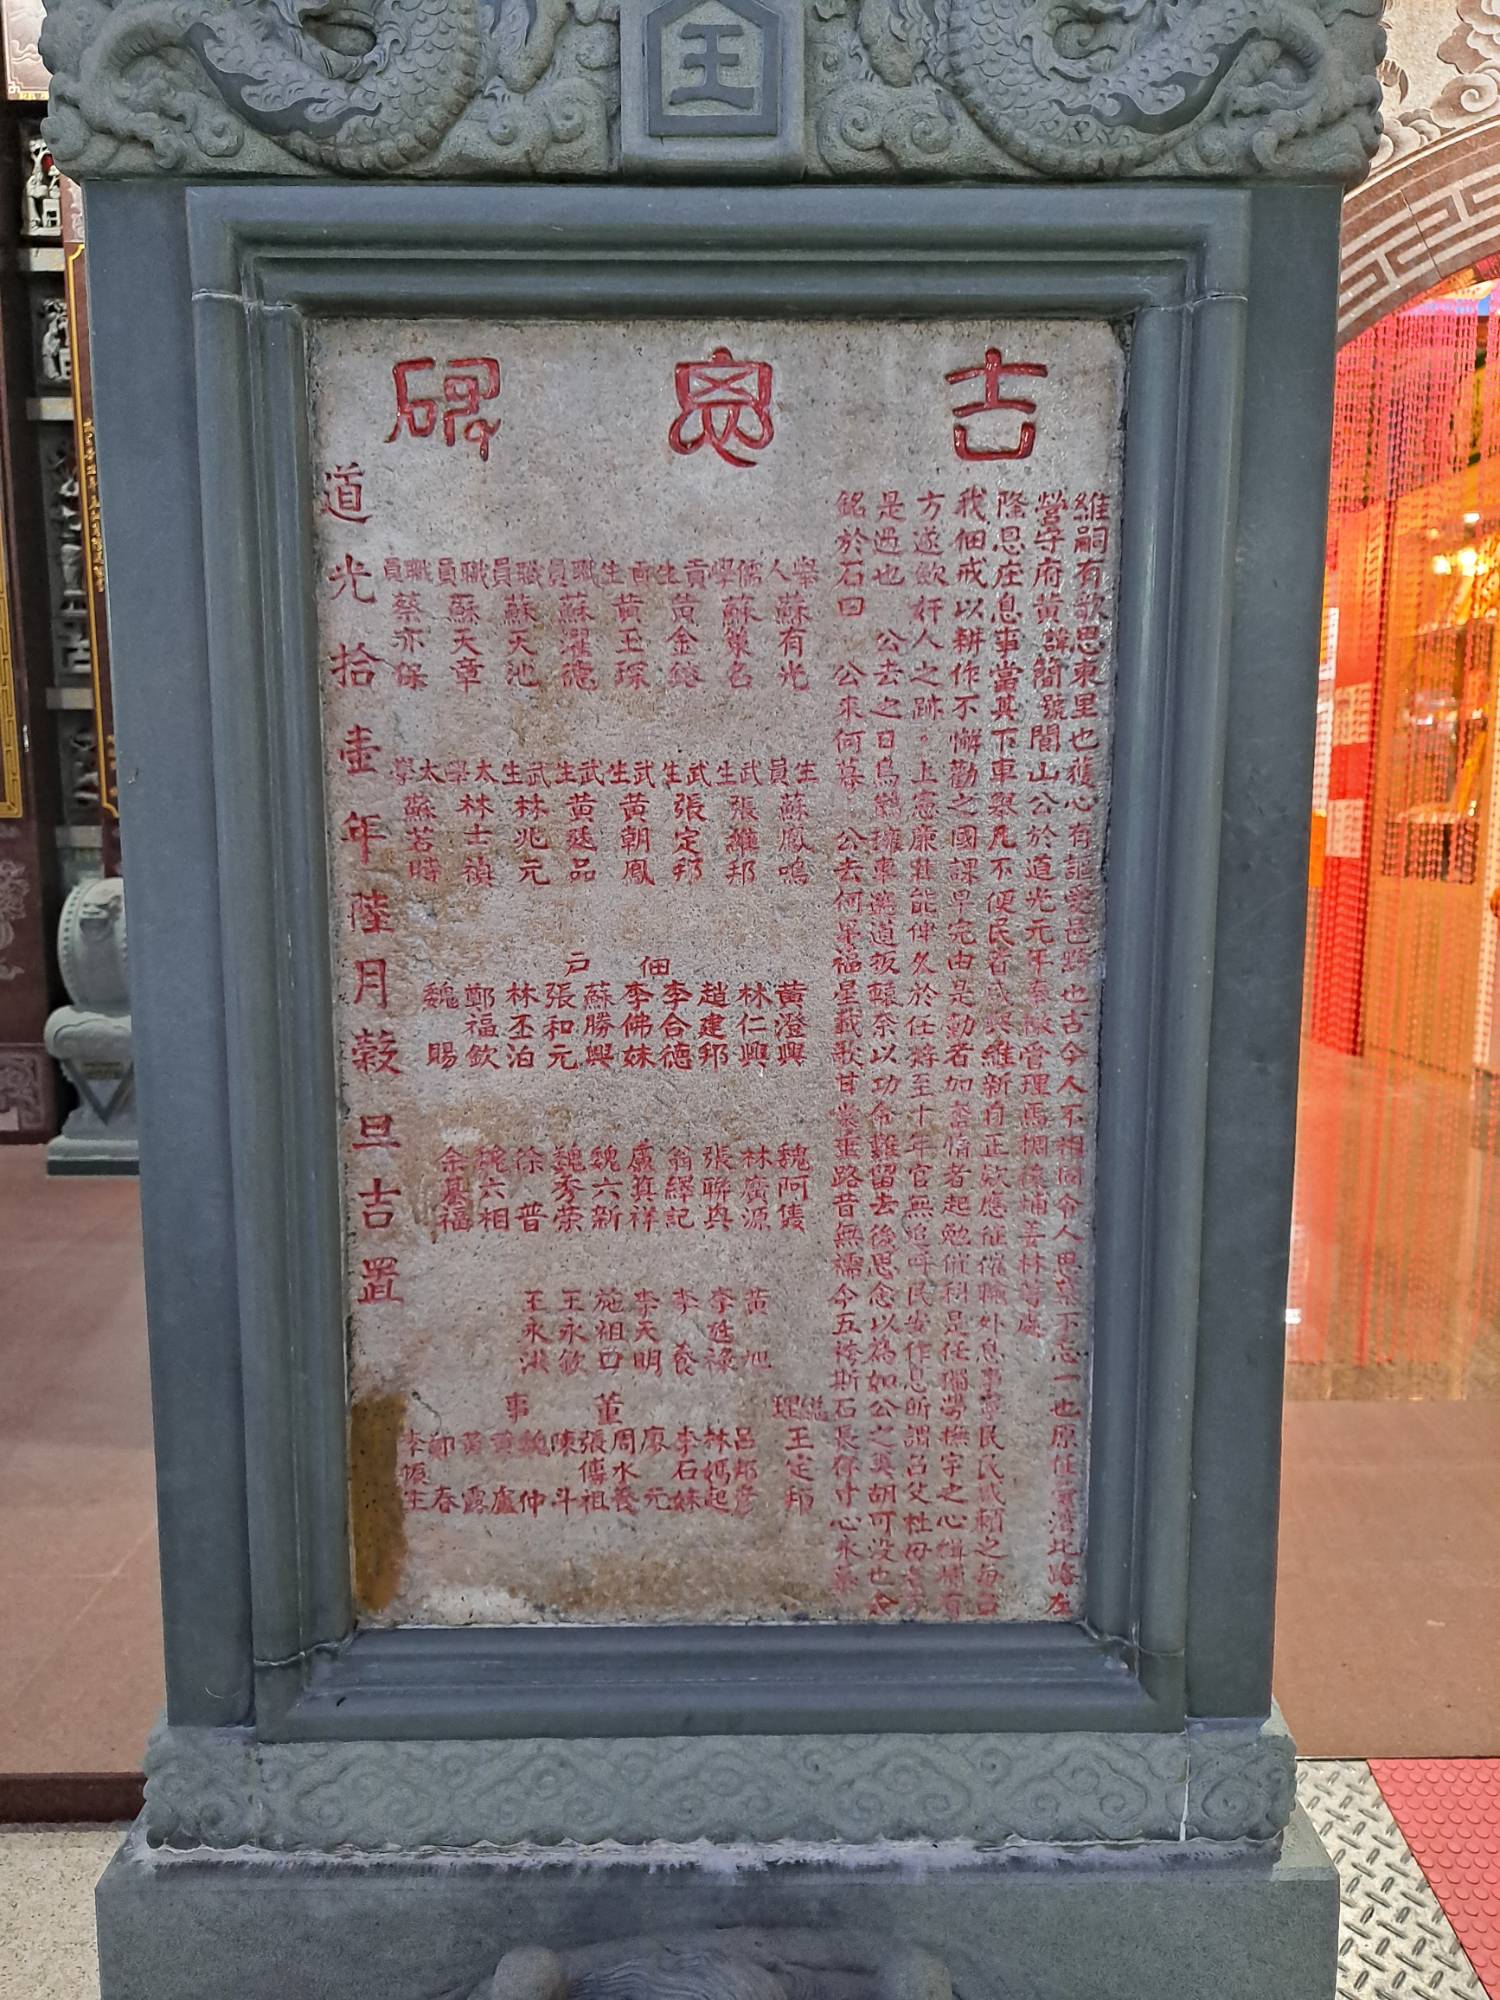 王
吉恩碑
維嗣有歌思東里也獲心有謳愛邑黟也古今人不相同令人思慕不忘一也原任臺灣北路左
營守府黃諱簡號閬山公於道光元年奉檄管理馬稠後埔姜林等處
隆恩庄息事當其下車舉凡不便民者咸與維新自正欵應征催職外息事寧民民咸賴之每召
我佃戒以耕作不懈勸之國課早完由是勤者加奮惰者起勉催科是任獨勞撫字之心緝捕有
方遂歛奸人之跡上憲廉其能俾久於任將至十年官無追呼民安作息所謂召父杜母
是過也 公去之日烏鶴擁車遮道扳轅奈以功令難留去後思念以為如公之英胡可没也爰
銘於石曰 公來何暮 公去何早福星載歌甘棠垂路昔無襦今五袴斯石長存寸心永慕
舉人蘇有光
儒學蘇策名
貢生黃金鎔
貢生黃玉琛
職員蘇濯德
職員蘇天池
職員蘇天章
職員蔡亦保
生員蘇鳳鳴
武生張維邦
武生張定邦
武生黃朝鳳
武生黃廷品
武生林兆元
太學林士禎
太學蘇若時
佃戶
黃澄興
林仁興
趙建邦
李合德
李佛妹
蘇勝興
張和元
林丕泊
鄭福欽
魏賜
魏阿隻
林廣源
張聯興
翁繹記
盧箕祥
魏六新
魏秀榮
徐普
魏六相
余基福
黃旭
李姓祿
李養
李天明
施祖口
王永欽
王永淑
總理王定邦
董事
呂邦彥
林媽起
李石妹
廖元
周水養
張傳祖
陳斗
魏仲
黃盧
黃露
鄭春
李恆生
道光拾壹年陸月穀旦吉置